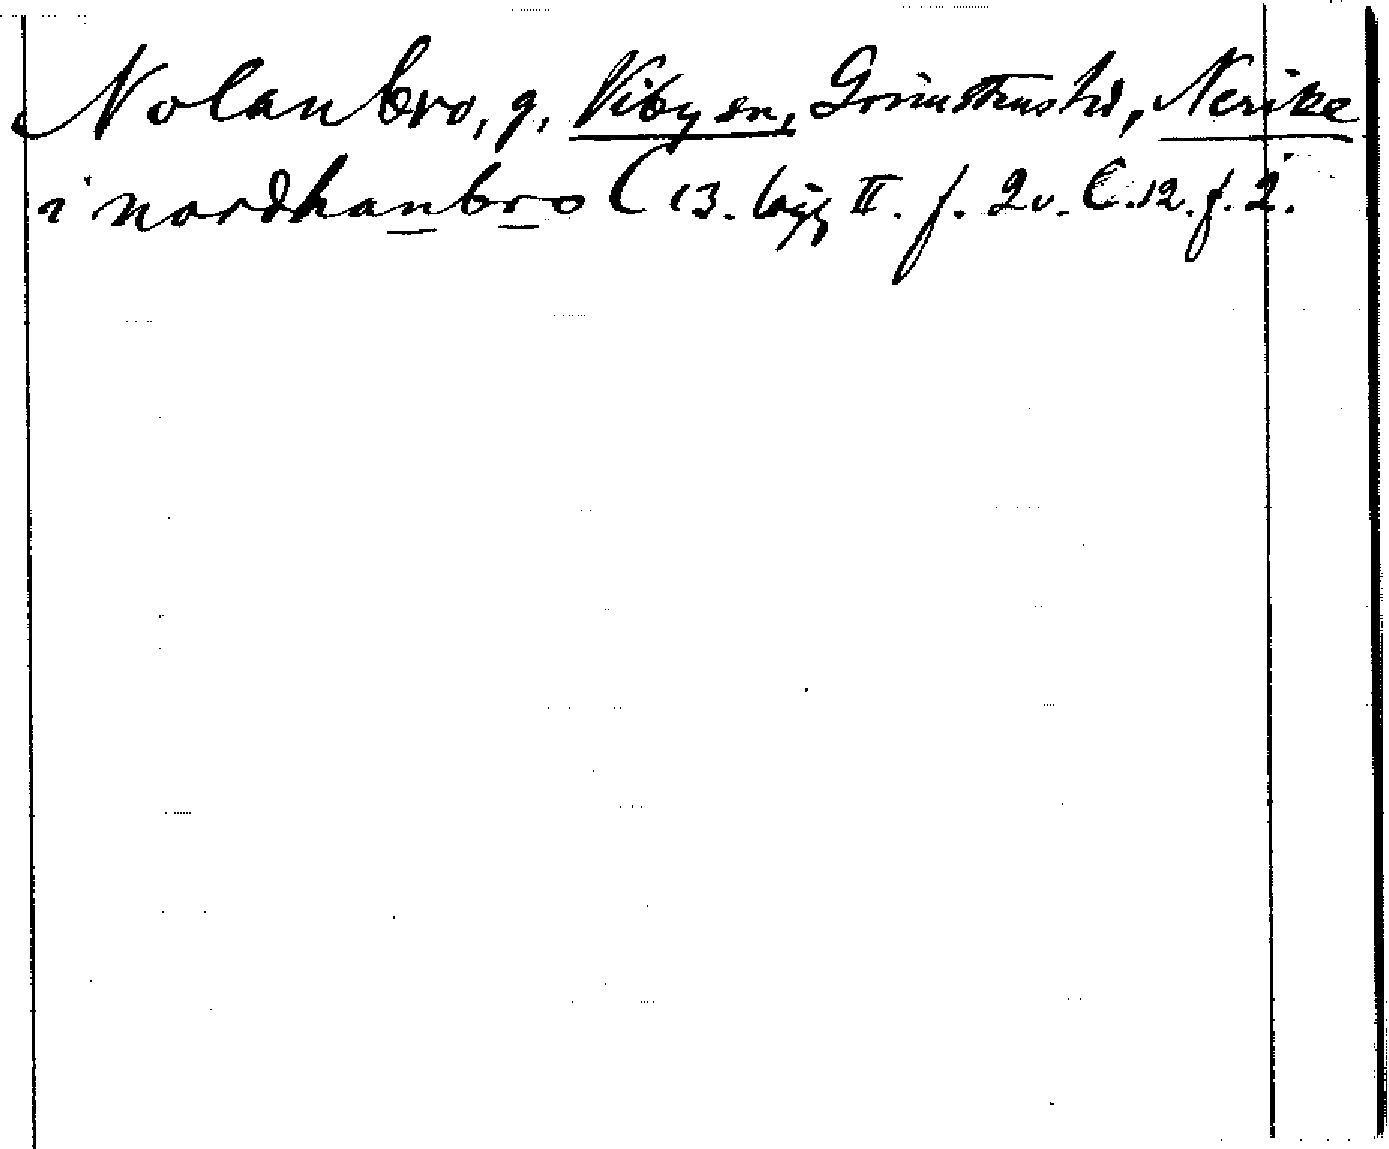 Nolanbro, g, Viby sn, Grimstens hd, Nerike
i nordhanbro C 13. lägg II. f. 2v. C. 12. f. 2.